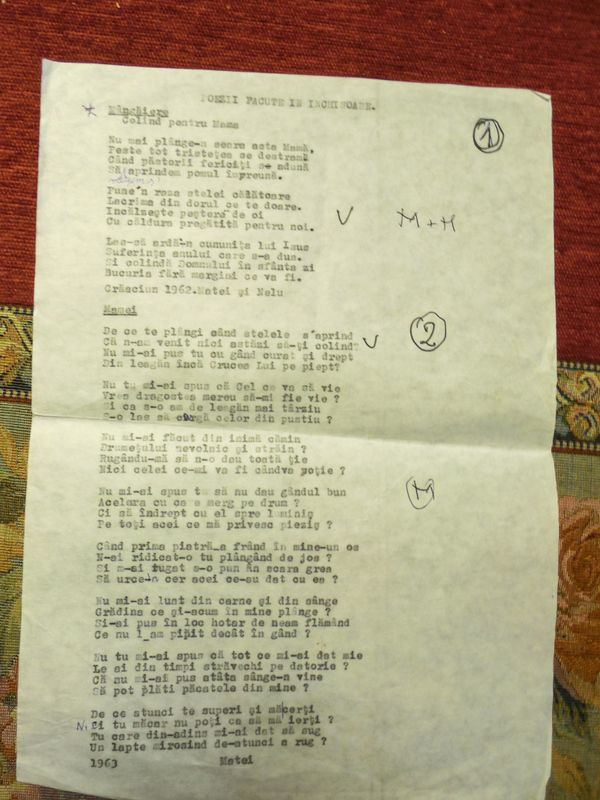 POESII FACUTE IN INCHISOARE.
Mângâiere
Colind pentru Mama
1
Nu mai plânge-n seara asta Mamă,
Peste tot tristețea se destramă
Când păstorii fericiți se adună
Să aprindem pomul împreună.
Pune'n raza stelei călătoare
Lacrima din dorul ce te doare.
Incălzește peștera de oi
Cu căldura pregătită pentru noi.
V M + M
Las-să ardă-n cununița lui Isus
Suferința anului care s-a dus.
Si colindă Domnului în sfânta zi
Bucuria fără margini ce va fi.
Crăsciun 1962.Matei și Nelu
Mamei
De ce te plângi când stelele s'aprind
Că n-am venit nici astăzi să-ți colind?
V 2
Nu mi-ai pus tu cu gând curat și drept
Din leagăn încă Crucea Lui pe piept?
Nu tu mi-ai spus că Cel ce va să vie
Vrea dragostea mereu să-mi fie vie ?
Si ca s-o am de leagăn mai târziu
S-o las să curgă celor din pustiu ?
Nu mi-ai făcut din inimă cămin
Drumețului nevolnic și străin ?
Rugându-mă să n-o dau toată ție
Nici celei ce-mi va fi cândva soție ?
Nu mi-ai spus tu să nu dau gândul bun
Acelora cu ca e merg pe drum ?
Ci să îndrept cu el spre luminiș
Pe toți acei ce mă privesc pieziș ?
M
Când prima piatră_a frând în mine-un os
N-ai ridicat-o tu plângând de jos ?
Si m-ai rugat s-o pun în scara grea
Să urce-n cer acei ce-au dat cu ea ?
Nu mi-ai luat din carne și din sânge
Grădina ce și-acum în mine plânge ?
Si-ai pus în loc hotar de neam flămând
Ce nu l_am pipăit decât în gând ?
Nu tu mi-ai spus că tot ce mi-ai dat mie
Le ai din timpi străvechi pe datorie ?
Că nu mi-ai pus atâta sânge-n vine
Să pot plăti păcatele din mine ?
De ce atunci te superi și măcerți
Si tu măcar nu poți ca să mă ierți ?
Tu care din-adins mi-ai dat să sug
Un lapte mirosind de-atunci a rug ?
1963 Matei